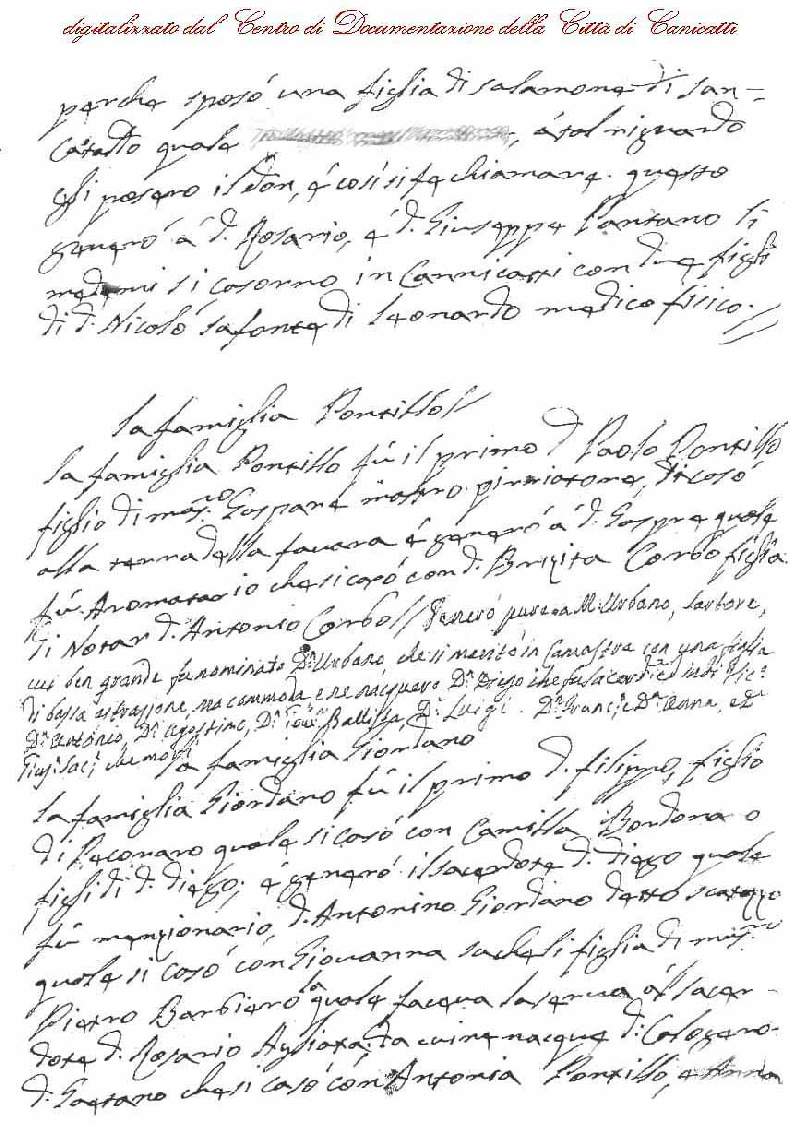 digitalizzato dal Centro di Documentazione della Città di Canicattì
perche sposó una figlia di salamone di san=
Cataldo quale , á tal riguardo
gli posero il don, é cosi si fe chiamare. questo
generó á d. Rosario, é d. Giuseppe Pantano li
medemi si casorno in Cannicatti con due figli
di d. Nicoló la fonte di Leonardo medico fisico.//
la famiglia Pontillo//
la famiglia Pontillo fú il primo d Paolo Pontillo
figlio di mas.ro Gaspare mastro, si casó
alla terra della favara é generó á d. Gaspre quale
fú Aromatario che si casó con d. Brigita Corbo figlia
di Notar d. Antonio Corbo// Generó pure a M. Urbano, sartore,
cui ben grande fu nominato D. Urbano, che si maritó in Camastra con una figlia
di bassa estrazione, ma commoda e ne nacquero D.n Diego che fu sacerd.e
D.n Antonio, D.n Agostino, D.n Giov. Battista, D.n Luigi. D.a Franc.a e D.a Anna, e D.a
la famiglia Giordano
la famiglia Giordano fú il primo d. filippo, figlio
di quale si casó con Camilla Bordona o
figli di d. diego; é generó il sacerdote d. diego quale
fú menzionario, d. Antonino Giordano detto
quale si casó con Giovanna figlia di
Pietro Barbiero la quale faceva la serva al sacer-
dote d. Rosario Agliata, da cui ne nacque d. Calogero
d. Gaetano che si casó con Antonia Pontillo, e Anna